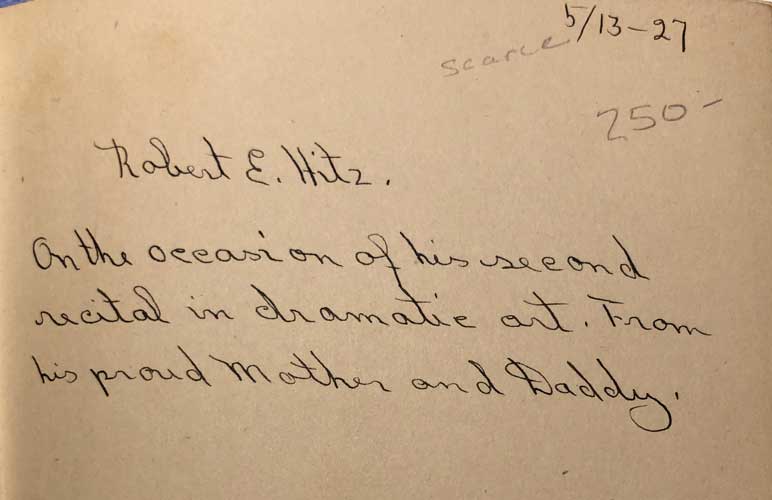 5/13-27
scarce
250-
Robert E. Hitz.
On the occasion of his second
recital in dramatic art. From
his proud Mother and Daddy.